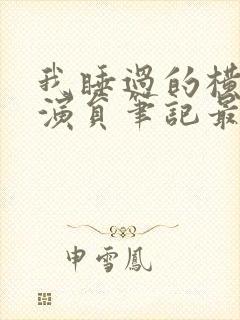 我睡過的橫
演員筆記最
申雪鳳